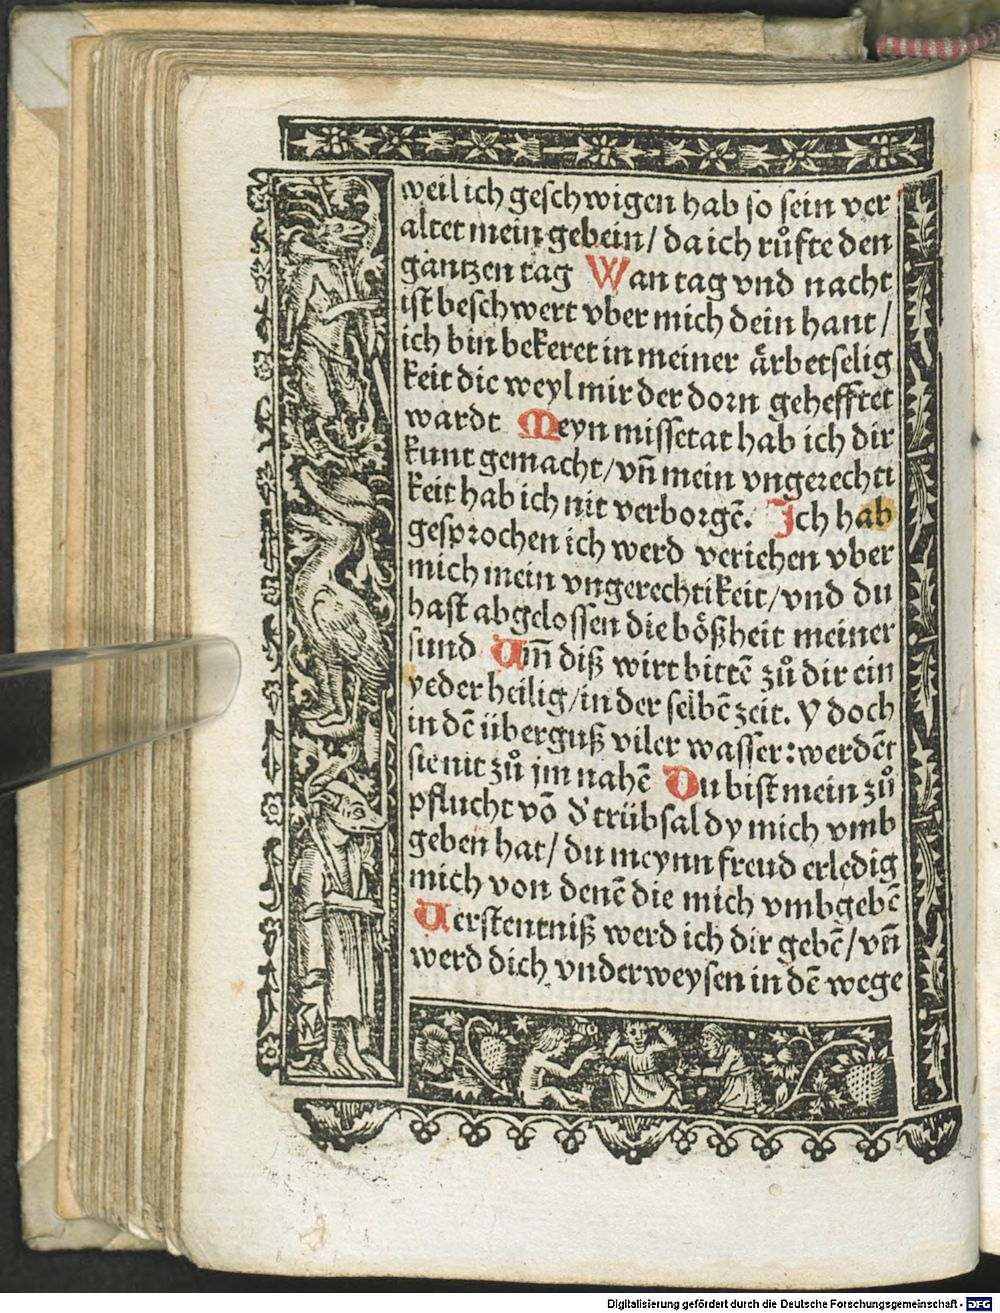 weil ich geschwigen hab so sein ver
altet mein gebein/ da ich růfte den
gantzen tag Wan tag vnd nacht
ist beschwert vber mich dein hant/
ich bin bekeret in meiner ârbetselig
keit die weyl mir der dorn gehefftet
wardt Meyn missetat hab ich dir
kunt gemacht/vñ mein vngerechti
keit hab ich nit verborgē. Ich hab
gesprochen ich werd veriehen vber
mich mein vngerechtikeit/vnd du
hast abgelossen die bößheit meiner
sund Um̄ diß wirt bittē zů dir ein
yeder heilig/in der selbē zeit. Y doch
in dē überguß viler wasser:werdēt
sie nit zů jm nahē Du bist mein zů
pflucht vō d' trübsal dy mich vmb
geben hat/ du meynn freud erledig
mich von denē die mich vmbgebē
Uerstentniß werd ich dir gebē/vñ
werd dich vnderweysen in dē wege
Digitalisierung gefördert durch die Deutsche Forschungsgemeinschaft - DFG